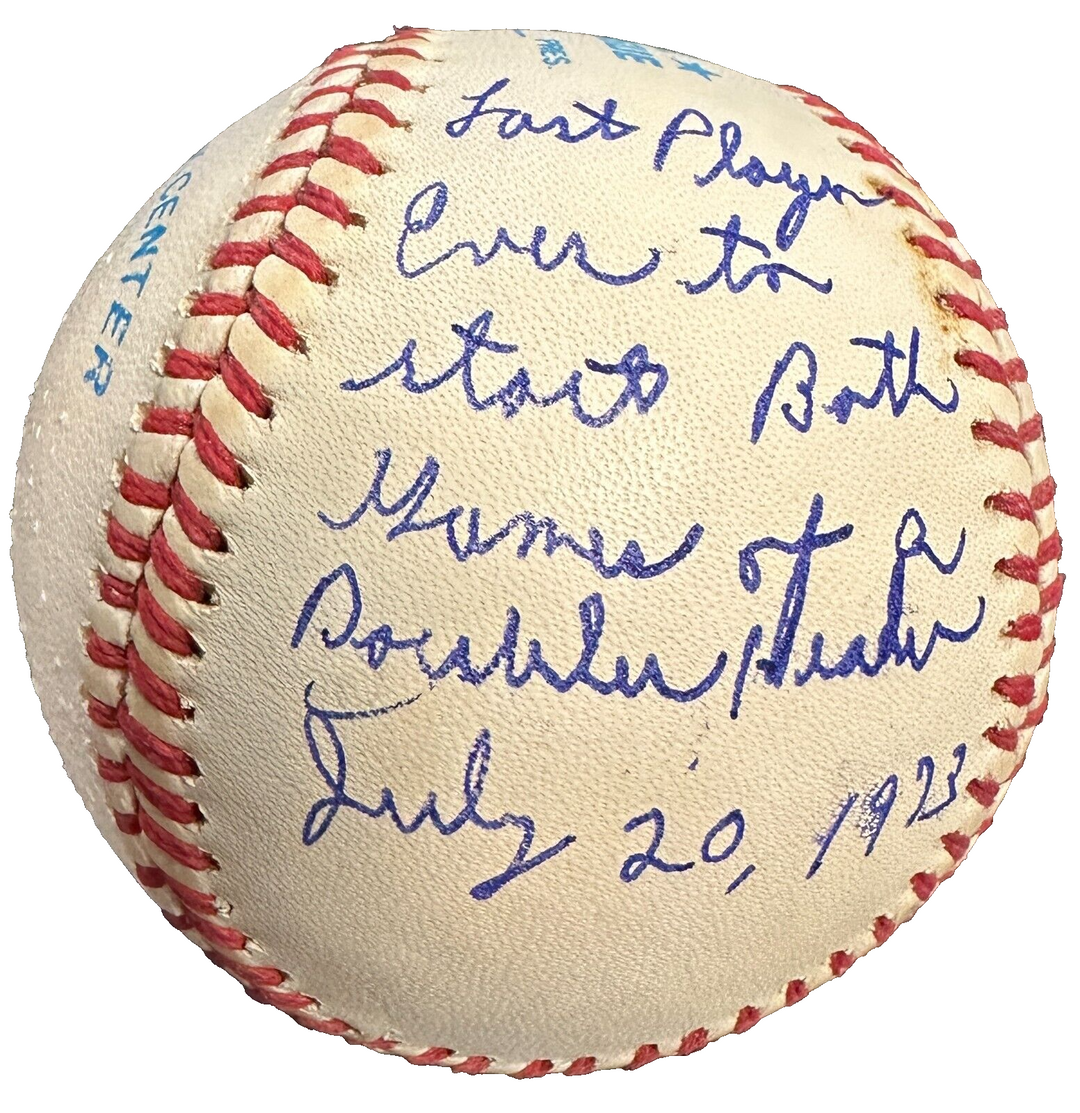 PRES.
CENTER
Last Player
Ever to
start Both
Games of a
Doubler Header
July 20, 1973